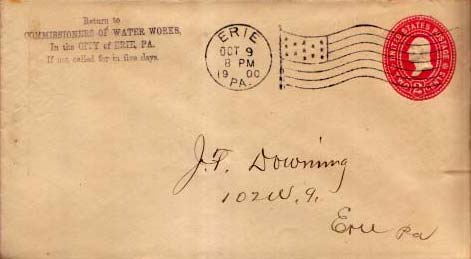 Return to
COMMISSIONERS OF WATER WORKS,
In the CITY of ERIE, PA.
If not called for in five days.
ERIE
OCT 9
8 PM
1900
PA.
UNITED STATES POSTAGE
2
J. F. Downing
102 W. 9.
Erie Pa